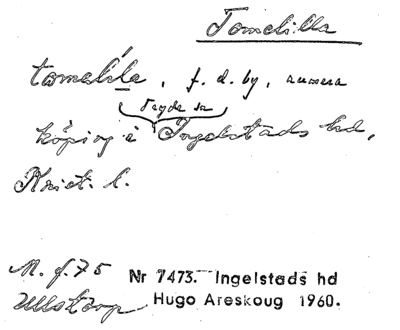 Tomelilla
tomelila, f. d. by, numera
Tryde sn
köping i Ingelstads hd,
Krist. l.
M. f. 75
Ullstorp
Nr 7473. Ingelstads hd
Hugo Areskoug 1960.